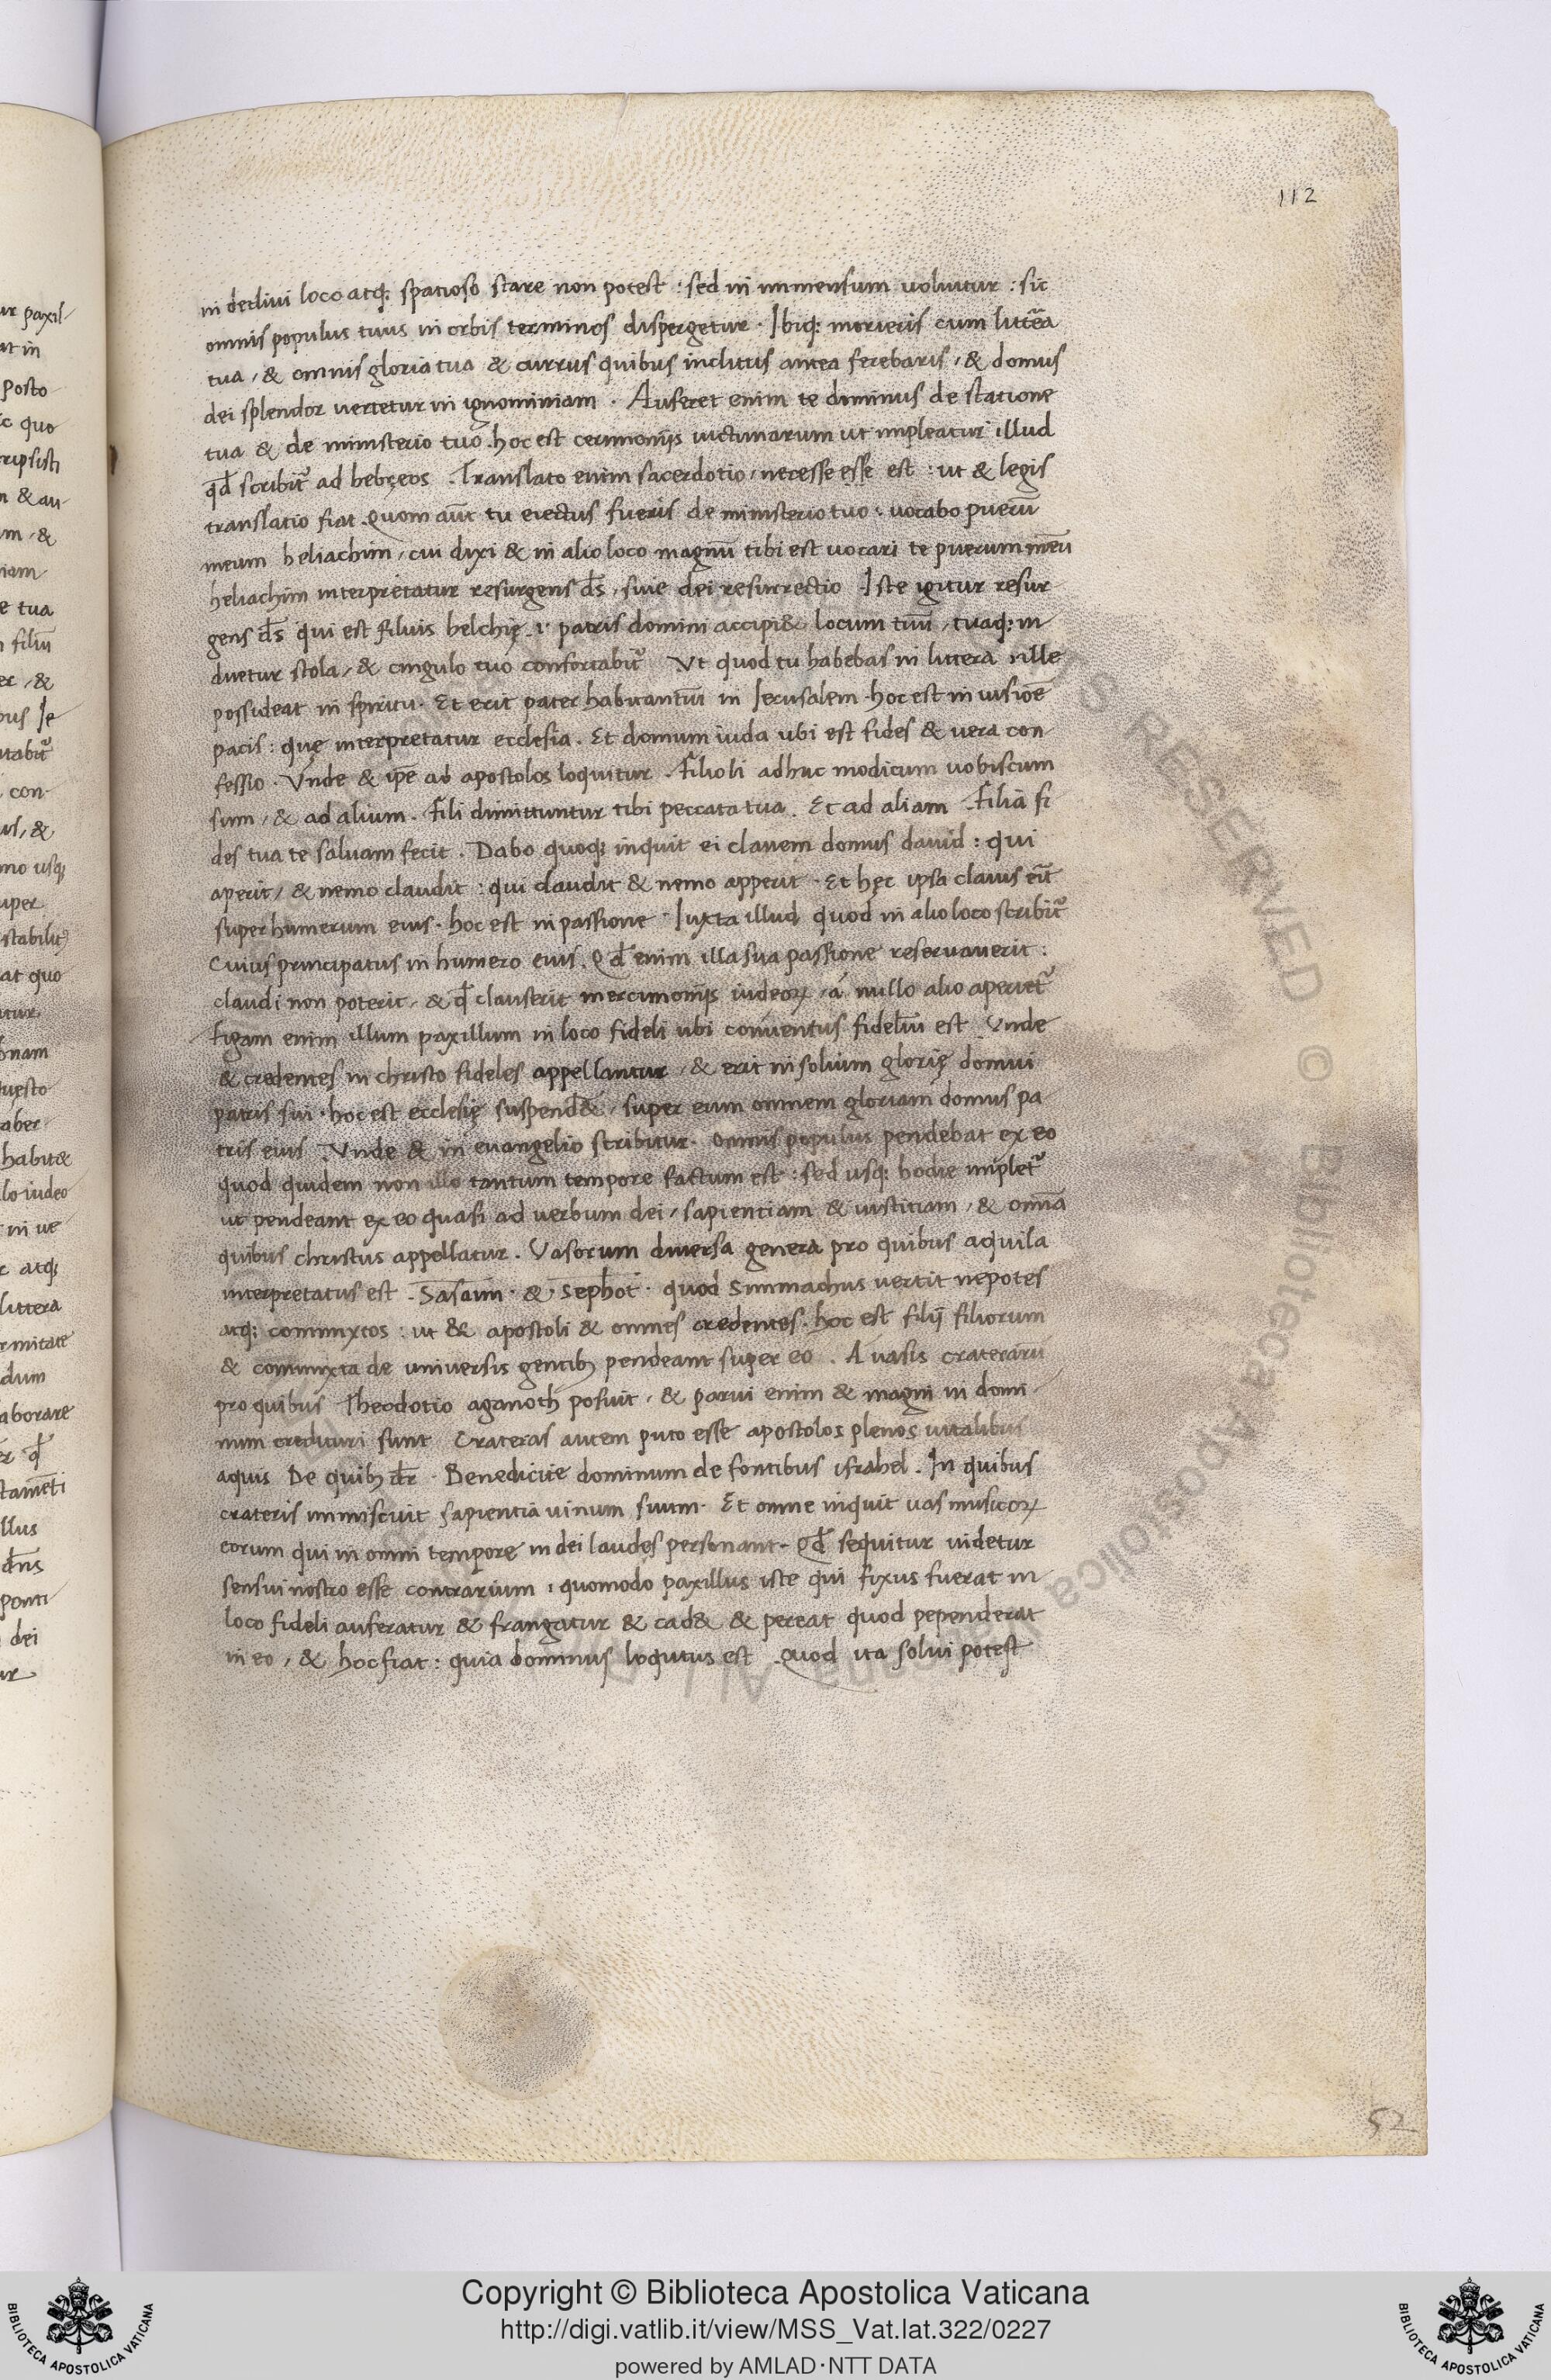 ur paxil
at in
posto
ic quo
cripsisti
n & au
m, &
niam
e tua
n filiū
er, &
bus Je
utabit᷑
con-
us, &
mo usq;
uper
stabilit᷑
at quo
atur
onam
tuęsto
aber
habit&
lo iudeo
in ue
r atq;
littera
rmitate
dum
laborare
tamēti
llus
dn̄s
ponti
dei
112
in declivi loco atq; spatioso stare non potest : sed in immensum voluitur : sic
omnis populus tuus in orbis terminos dispergetur . Ibiq; morieris cum littēa
tua , & omnis gloria tua & currus quibus inclitus antea ferebaris , & domus
dei splendor uertetur in ignominiam . Auferet enim te dominus de statione
tua & de ministerio tuo . hoc est cerimonijs uictimarum ut impleatur illud
qd̄ scribit᷑ ad hebręos . Translato enim sacerdotio , necesse esse est : ut & legis
translatio fiat . Quom aūt tu eiectus fueris de ministerio tuo : uocabo puerū
meum heliachim , cui dixi & in alio loco magnū tibi est uocari te puerum meū
heliachim interpretatur resurgens d̄s , siue dei resurrectio . Iste igitur resur
gens d̄s qui est filius helchię .i. patris domini accipi& locum tuū , tuaq; in
duetur stola , & cingulo tuo confortabit᷑ Vt quod tu habebas in littera , ille
possideat in spiritu . Et erit pater habitantiū in Jerusalem . hoc est in uisiōe
pacis : quę interpretatur ecclesia . Et domum iuda ubi est fides & uera con-
fessio . Vnde & ip̄e ad apostolos loquitur . Filioli adhuc modicum uobiscum
sum , & ad alium . Fili dimittuntur tibi peccata tua . Et ad aliam . Filia fi
des tua te saluam fecit . Dabo quoq; inquit ei clauem domus dauid : qui
aperit , & nemo claudit : qui claudit & nemo apperit . Et hęc ipsa clauis erit
super humerum eius . hoc est in passione . Juxta illud quod in alio loco scribit᷑
Cuius principatus in humero eius . Qd̄ enim illa sua passione reseruauerit :
claudi non poterit , & qd̄ clauserit mercimonijs iudeoꝝ , á nullo alio aperiet᷑
Figam enim illum paxillum in loco fideli ubi conuentus fideliū est . Unde
& credentes in christo fideles appellantur , & erit in solium glorię domui
patris sui . hoc est ecclesię suspend& , super eum omnem gloriam domus pa-
tris eius . Vnde & in euangelio scribitur . omnis populus pendebat ex eo
quod quidem non illo tantum tempore factum est : sed usq; hodie implet᷑
ut pendeant ex eo quasi ad uerbum dei , sapientiam & iustitiam , & omīa
quibus christus appellatur . Vasorum diuersa genera pro quibus aquila
interpretatus est . Sasaim . & . Sephot . quod Simmachus uertit nepotes
atq; commixtos : ut & apostoli & omnes credentes . hoc est filij filiorum
& commixta de uniuersis gentib; pendeant super eo . A uasis craterarū
pro quibus Theodotio aganoth posuit , & parui enim & magni in domi-
num credituri sunt . Crateras autem puto esse apostolos plenos uitalibus
aquis De quib; d̄r . Benedicite dominum de fontibus israhel . In quibus
crateris immiscuit sapientia uinum suum . Et omne inquit uas musicoꝝ
eorum qui in omni tempore in dei laudes personant . Qd̄ sequitur uidetur
sensui nostro esse contrarium : quomodo paxillus iste qui fixus fuerat in
loco fideli auferatur & frangatur & cad& & pereat quod pependerat
in eo , & hoc fiat : quia dominus loqutus est . Quod ita solui potest
52
Copyright © Biblioteca Apostolica Vaticana
http://digi.vatlib.it/view/MSS_Vat.lat.322/0227
powered by AMLAD·NTT DATA
BIBLIOTECA APOSTOLICA VATICANA
BIBLIOTECA APOSTOLICA VATICANA